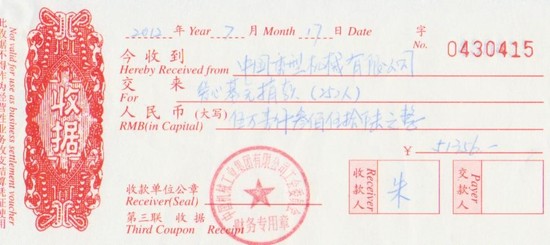 2012 年 Year 7 月 Month 17 日 Date
字 No. 0430415
今收到
Hereby Received from 中国重型机械有限公司
交来
For 爱心基金捐款(252人)
人民币(大写)
RMB(in Capital) 伍万壹仟叁佰伍拾陆元整
¥ 51356—
收款单位公章
Receiver(Seal)
第三联 收据
Third Coupon Receipt
收款人 Receiver 朱
交款人 Payer
收据
Not valid for use as business settlement voucher
财务专用章